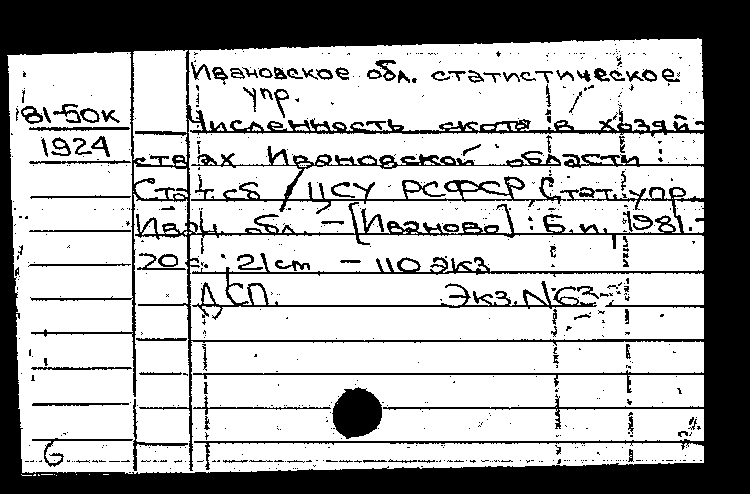 Ивановское обл. статистическое
упр.
81-50к
Численность скота в хозяй-
1924
ствах Ивановской области :
Стат. сб / ЦСУ РСФСР Стат. упр.
Иван. обл. - [Иваново] : Б.и. 1981.-
20 с. ; 21 cm - 110 экз
ДСП. Экз. N 63
6